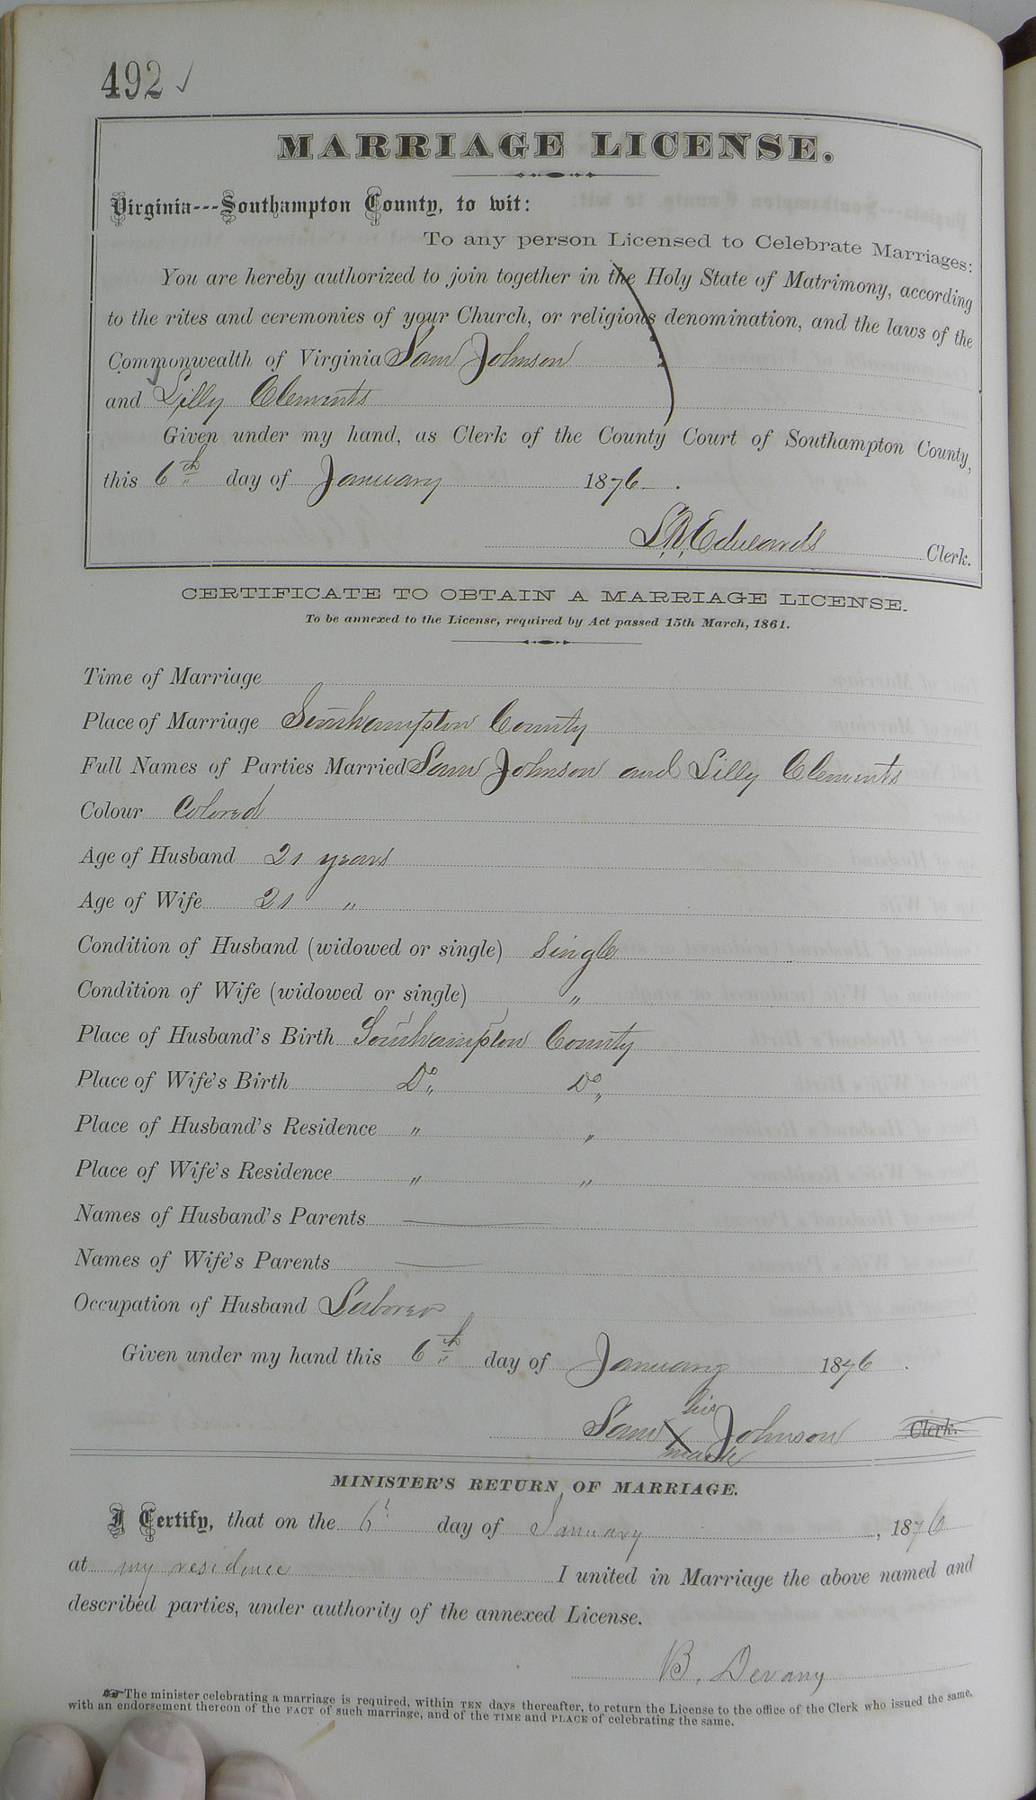 492 ✓
MARRIAGE LICENSE.
Virginia---Southampton County, to wit:
To any person Licensed to Celebrate Marriages:
You are hereby authorized to join together in the Holy State of Matrimony, according
to the rites and ceremonies of your Church, or religious denomination, and the laws of the
Commonwealth of Virginia Sam Johnson
and Lilly Clements
Given under my hand, as Clerk of the County Court of Southampton County,
this 6th day of January 1876.
L.R. Edwards Clerk.
CERTIFICATE TO OBTAIN A MARRIAGE LICENSE.
To be annexed to the License, required by Act passed 15th March, 1861.
Time of Marriage
Place of Marriage Southampton County
Full Names of Parties Married Sam Johnson and Lilly Clements
Colour Colored
Age of Husband 21 years
Age of Wife 21 "
Condition of Husband (widowed or single) Single
Condition of Wife (widowed or single) "
Place of Husband's Birth Southampton County
Place of Wife's Birth Do Do
Place of Husband's Residence " "
Place of Wife's Residence " "
Names of Husband's Parents —
Names of Wife's Parents —
Occupation of Husband Laborer
Given under my hand this 6th day of January 1876.
Sam his X mark Johnson Clerk.
MINISTER'S RETURN OF MARRIAGE.
I Certify, that on the 6t day of January, 1876
at my residence I united in Marriage the above named and
described parties, under authority of the annexed License.
B. Devany
☞The minister celebrating a marriage is required, within TEN days thereafter, to return the License to the office of the Clerk who issued the same,
with an endorsement thereon of the FACT of such marriage, and of the TIME and PLACE of celebrating the same.